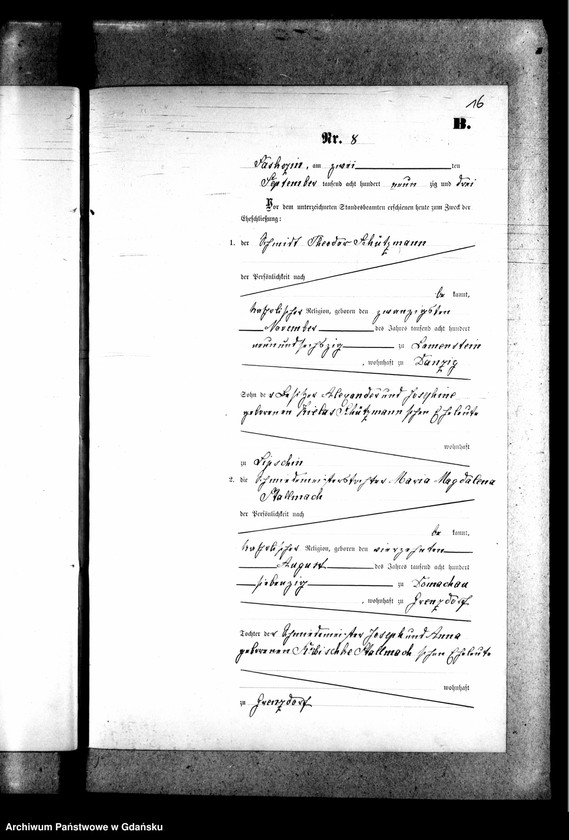 16
B.
Nr. 8
am zwei ten
September tausend acht hundert neun zig und drei
Vor dem unterzeichneten Standesbeamten erschienen heute zum Zweck der
Eheschließung:
1. der Schmidt Theodor Schützmann
der Persönlichkeit nach
be kannt,
katholischer Religion, geboren den zwanzigsten
November des Jahres tausend acht hundert
neunundsechszig zu Lamenstein
, wohnhaft zu Danzig
Sohn der Besitzer Alexander und Josephine
geborenen Schützmann'schen Eheleute
wohnhaft
zu Lipschin
2. die Schmiedemeisterstochter Maria Magdalena
Stallmach
der Persönlichkeit nach
be kannt,
katholischer Religion, geboren den vierzehnten
August des Jahres tausend acht hundert
siebenzig zu Domachau
, wohnhaft zu Grenzdorf
Tochter der Schmiedemeister Joseph und Anna
geborenen Stallmach'schen Eheleute
wohnhaft
zu Grenzdorf
Archiwum Państwowe w Gdańsku